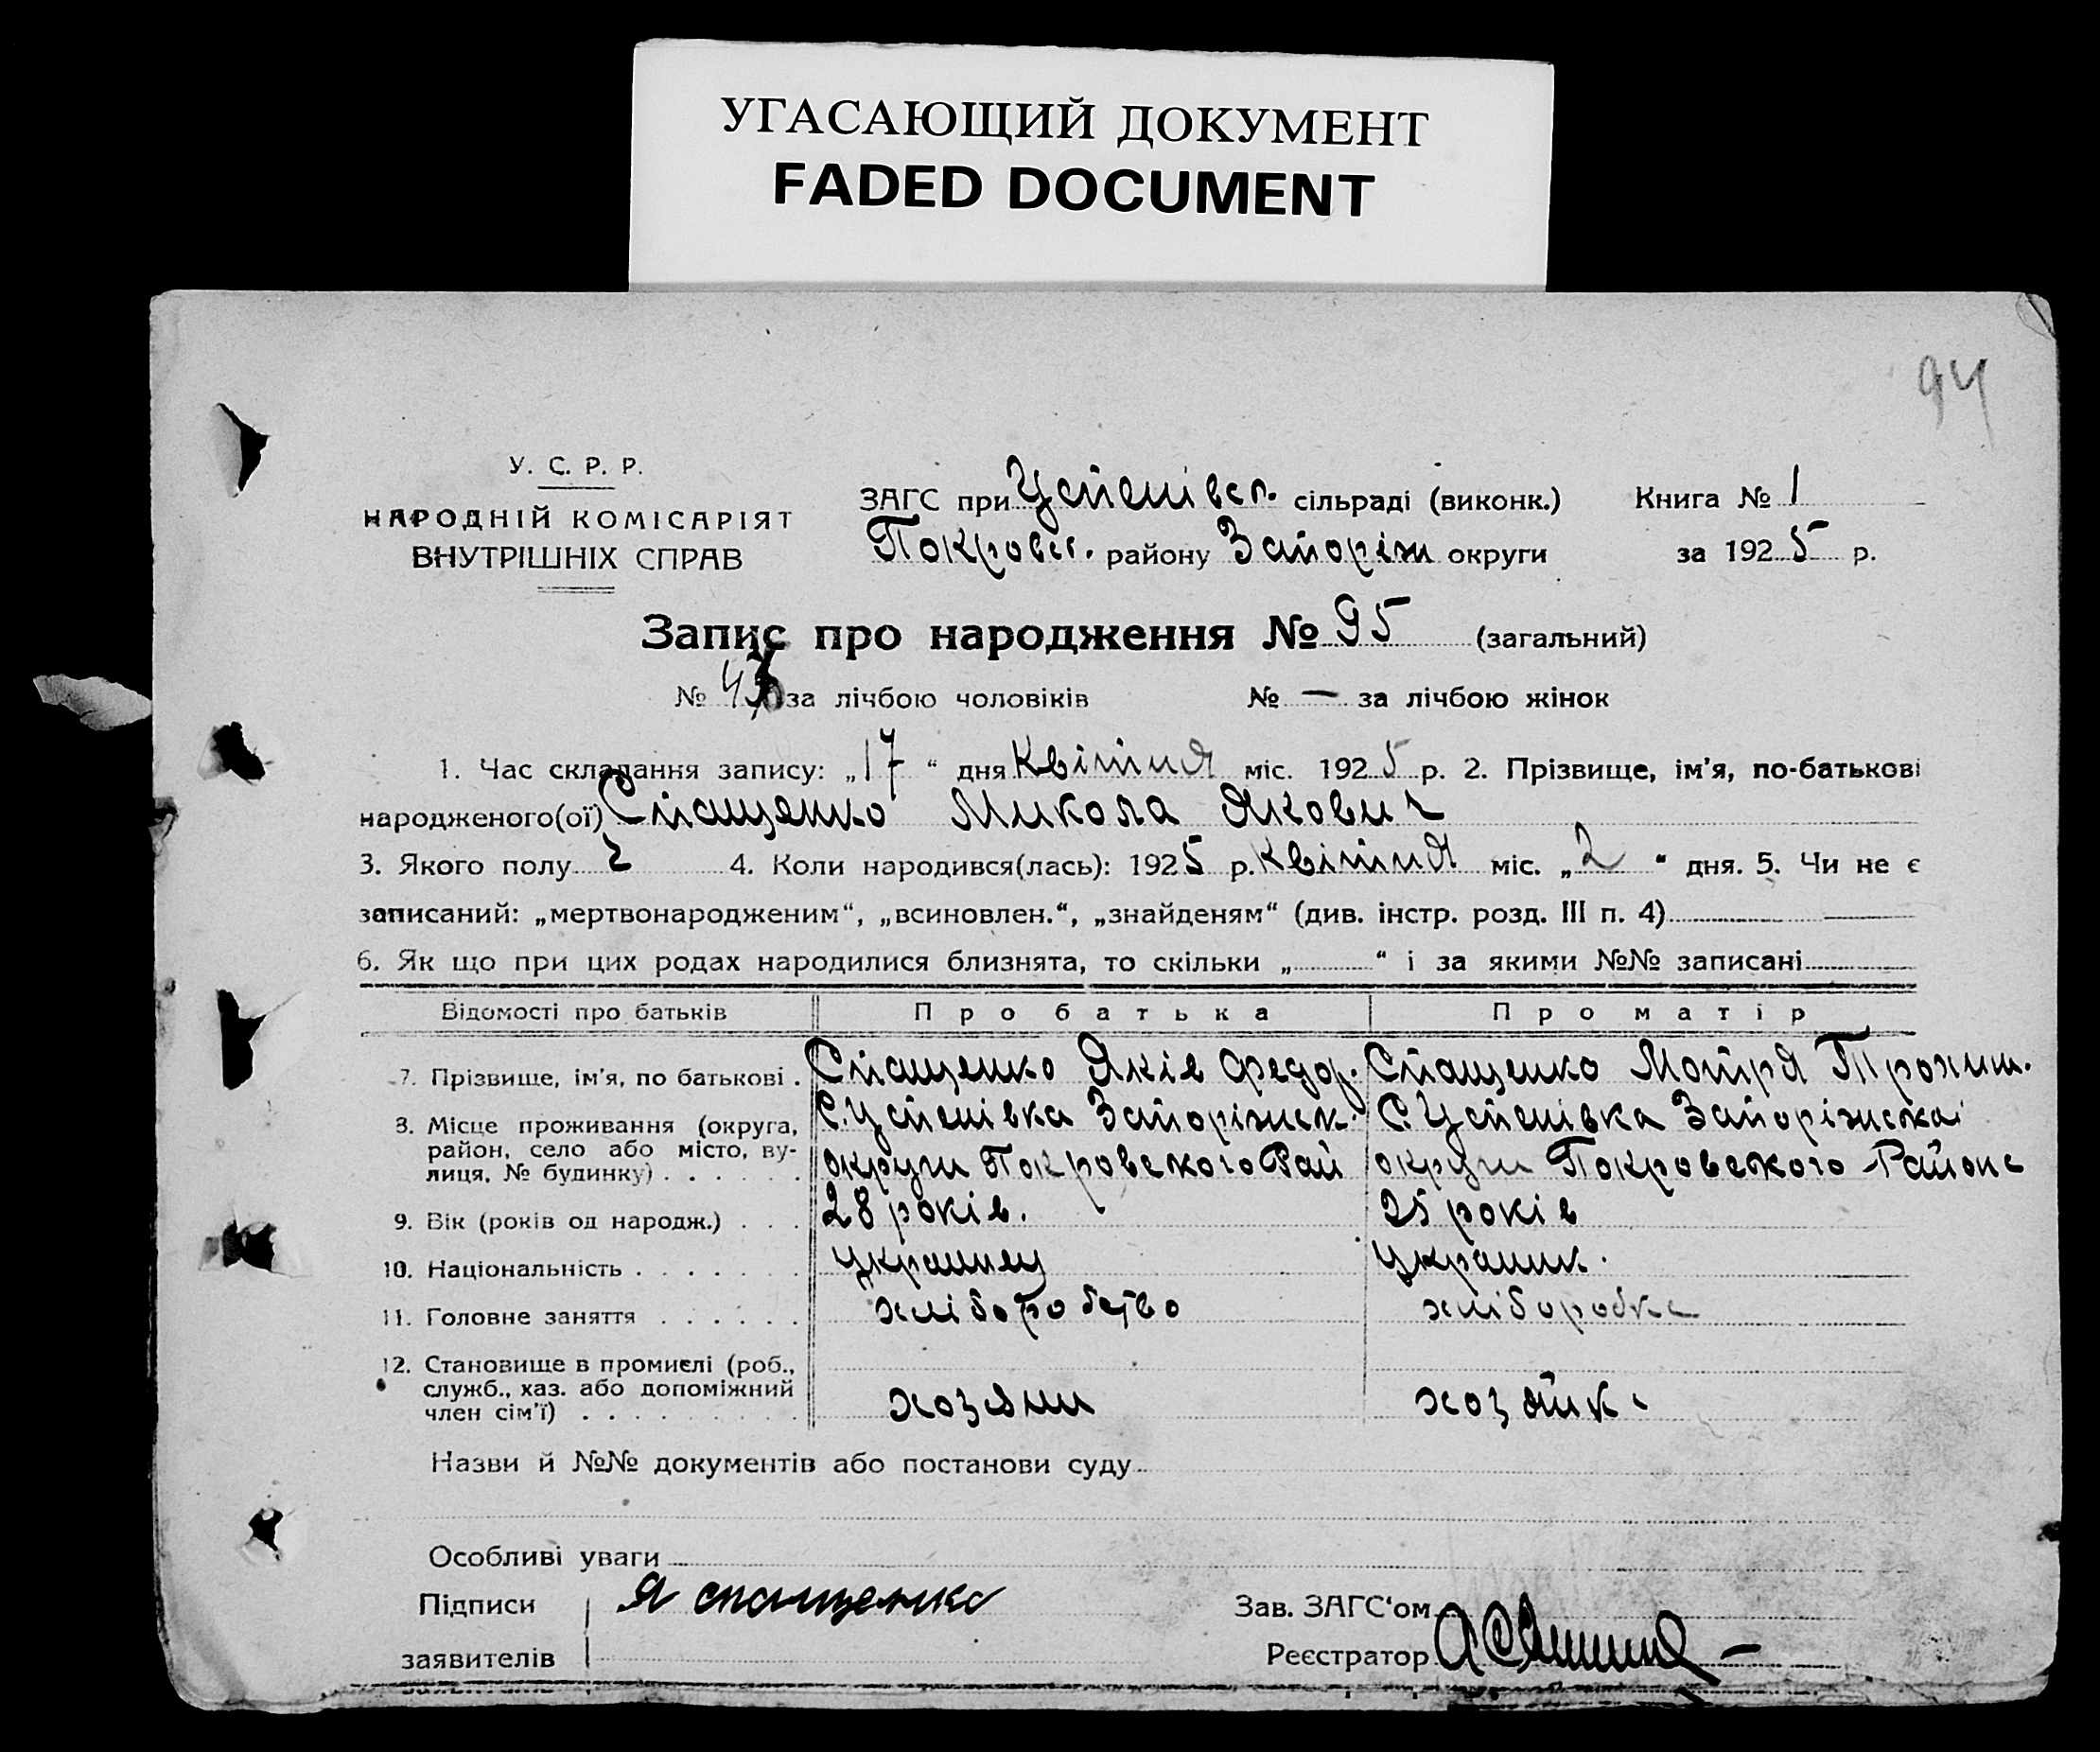 УГАСАЮЩИЙ ДОКУМЕНТ
FADED DOCUMENT
94
У. С. Р. Р.
НАРОДНІЙ КОМІСАРІЯТ
ВНУТРІШНІХ СПРАВ
ЗАГС при Успенівск. сільраді (виконк.) Книга № 1
Покровск. району Запоріж округи за 1925 р.
Запис про народження № 95 (загальний)
№ 43 за лічбою чоловіків № — за лічбою жінок
1. Час складання запису: „17“ дня Квітня міс. 1925 р. 2. Прізвище, ім'я, по-батькові
народженого(ої) Спащенко Микола Якович
3. Якого полу ч 4. Коли народився(лась): 1925 р. Квітня міс. „2“ дня. 5. Чи не є
записаний: „мертвонародженим“, „всиновлен.“, „знайденям“ (див. інстр. розд. III п. 4)
6. Як що при цих родах народилися близнята, то скільки „ “ і за якими №№ записані
Відомості про батьків Про батька Про матір
7. Прізвище, ім'я, по батькові . Спащенко Яків Федор. Спащенко Мотря Трохим.
8. Місце проживання (округа, С. Успенівка Запоріжск. С. Успенівка Запоріжська
район, село або місто, ву-
лиця, № будинку) . . . . . . округи Покровского Рай округи Покровского Района
9. Вік (років од народж.) . . . 28 років. 25 років
10. Національність . . . . . . . українец українк.
11. Головне заняття . . . . . . хліборобство хліборобка
12. Становище в промислі (роб.,
служб., хаз. або допоміжний хозяин хозяйка
член сім'ї) . . . . . . . . .
Назви й №№ документів або постанови суду
Особливі уваги
Підписи Я спащенко Зав. ЗАГС'ом
заявителів Реєстратор